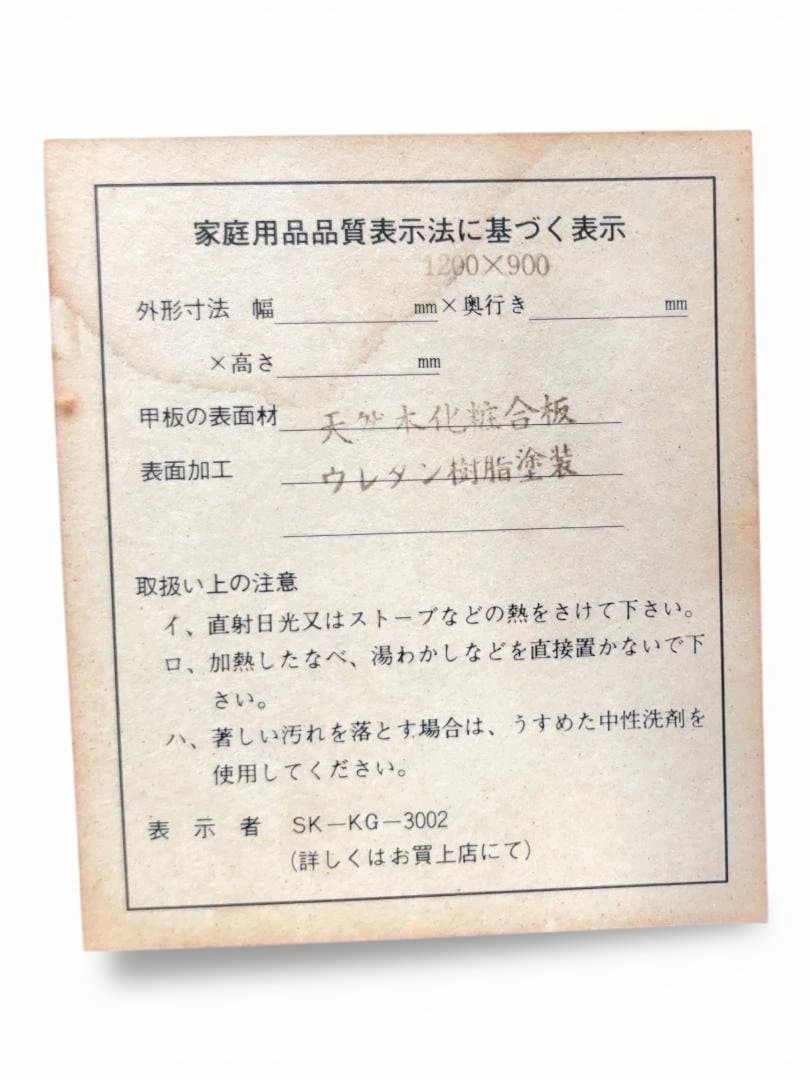 家庭用品品質表示法に基づく表示
1200×900
外形寸法 幅 mm×奥行き mm
×高さ mm
甲板の表面材 天然木化粧合板
表面加工 ウレタン樹脂塗装
取扱い上の注意
イ、直射日光又はストーブなどの熱をさけて下さい。
ロ、加熱したなべ、湯わかしなどを直接置かないで下
さい。
ハ、著しい汚れを落とす場合は、うすめた中性洗剤を
使用してください。
表示者 SK-KG-3002
(詳しくはお買上店にて)